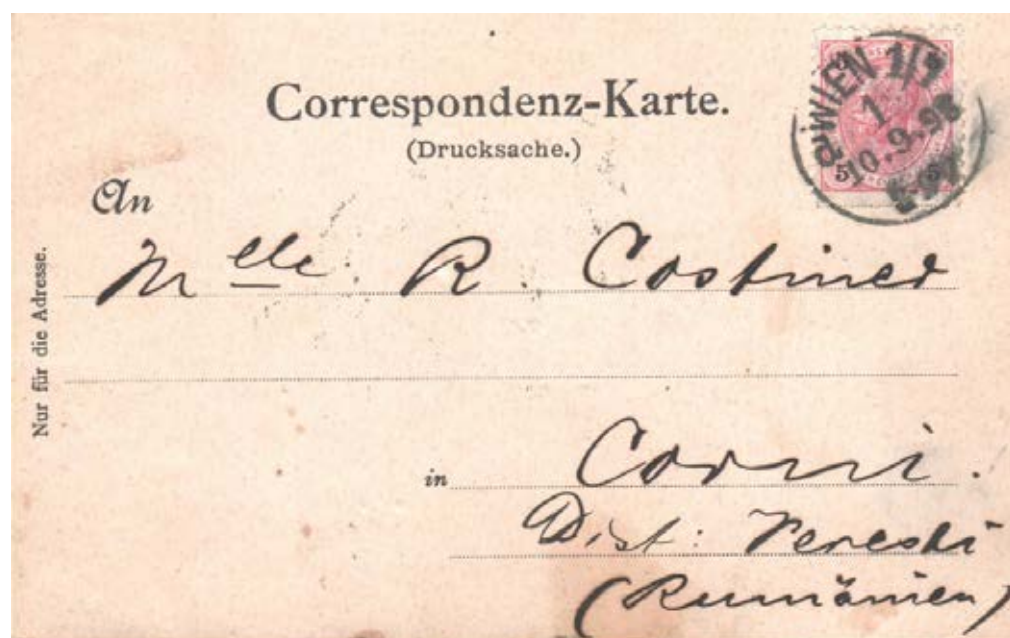 Correspondenz-Karte.
(Drucksache.)
WIEN 1/1
1
10.9.98
5 5
An
Mlle. R. Costiner
Nur für die Adresse.
in Corni.
Dist:
(Rumänien)